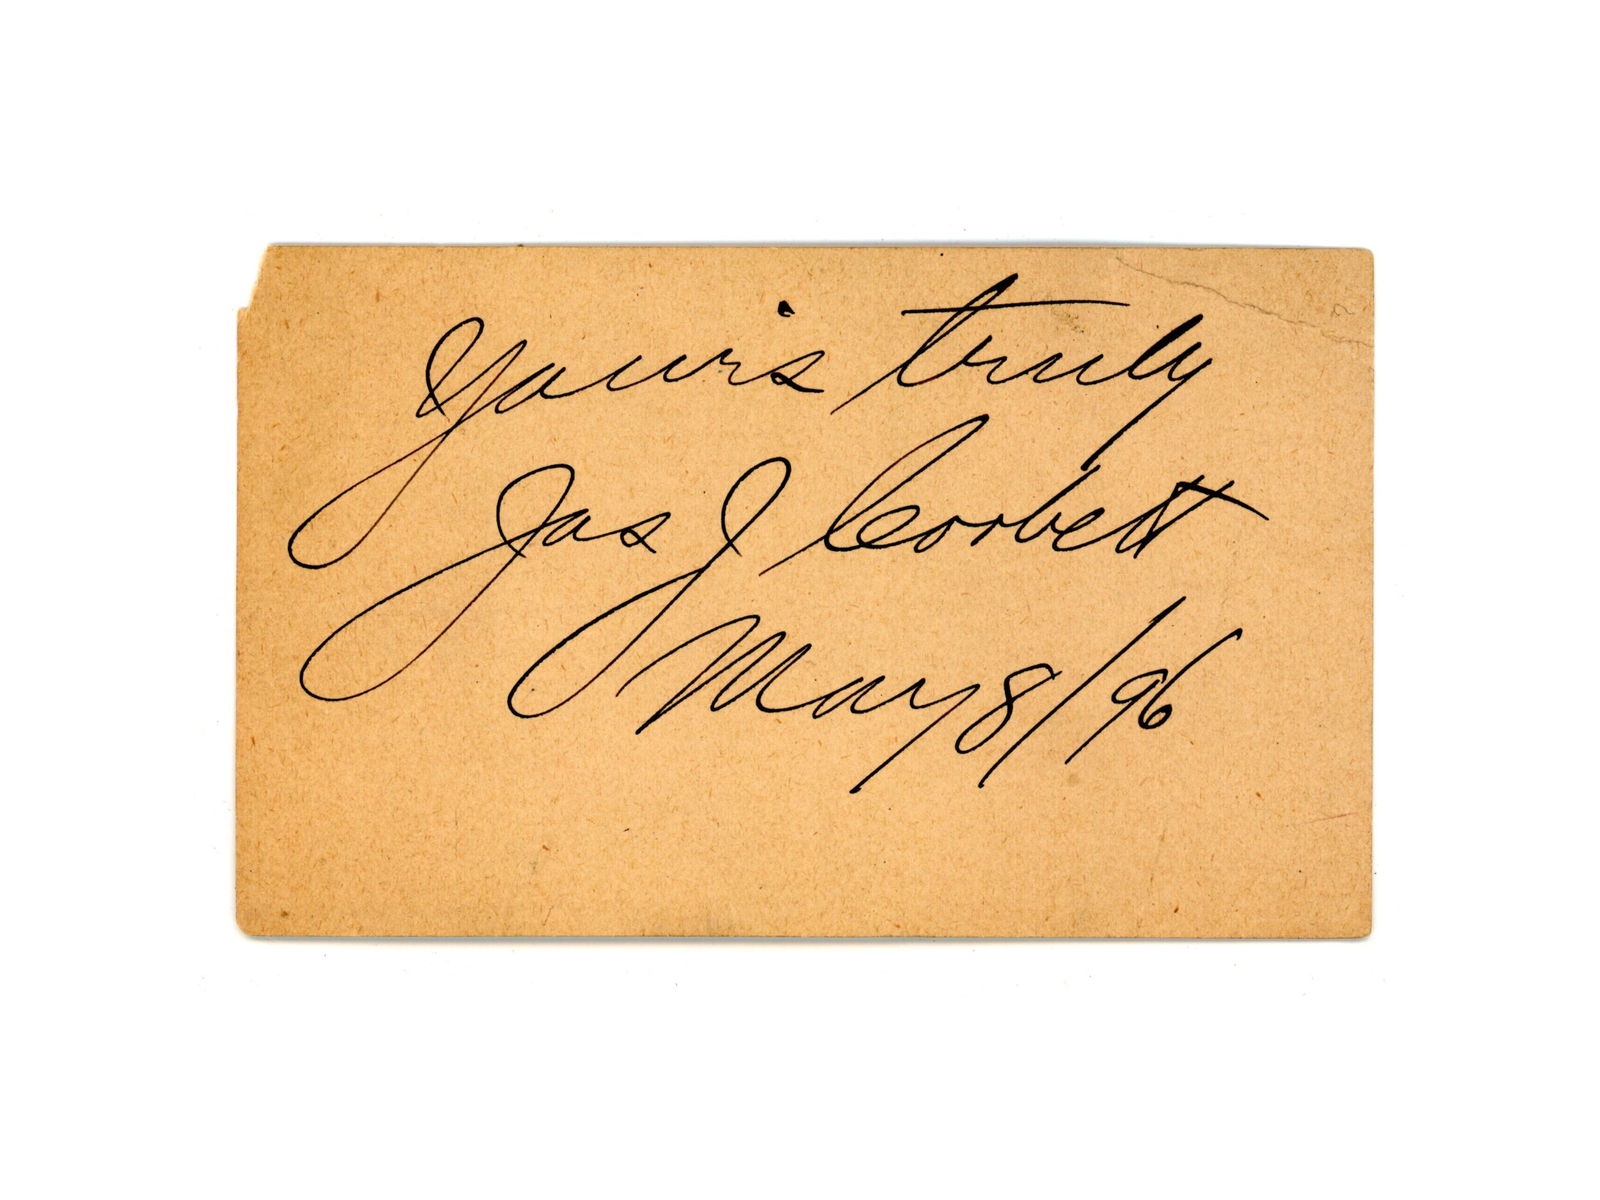 Yours truly
Jas J Corbett
May 8/96